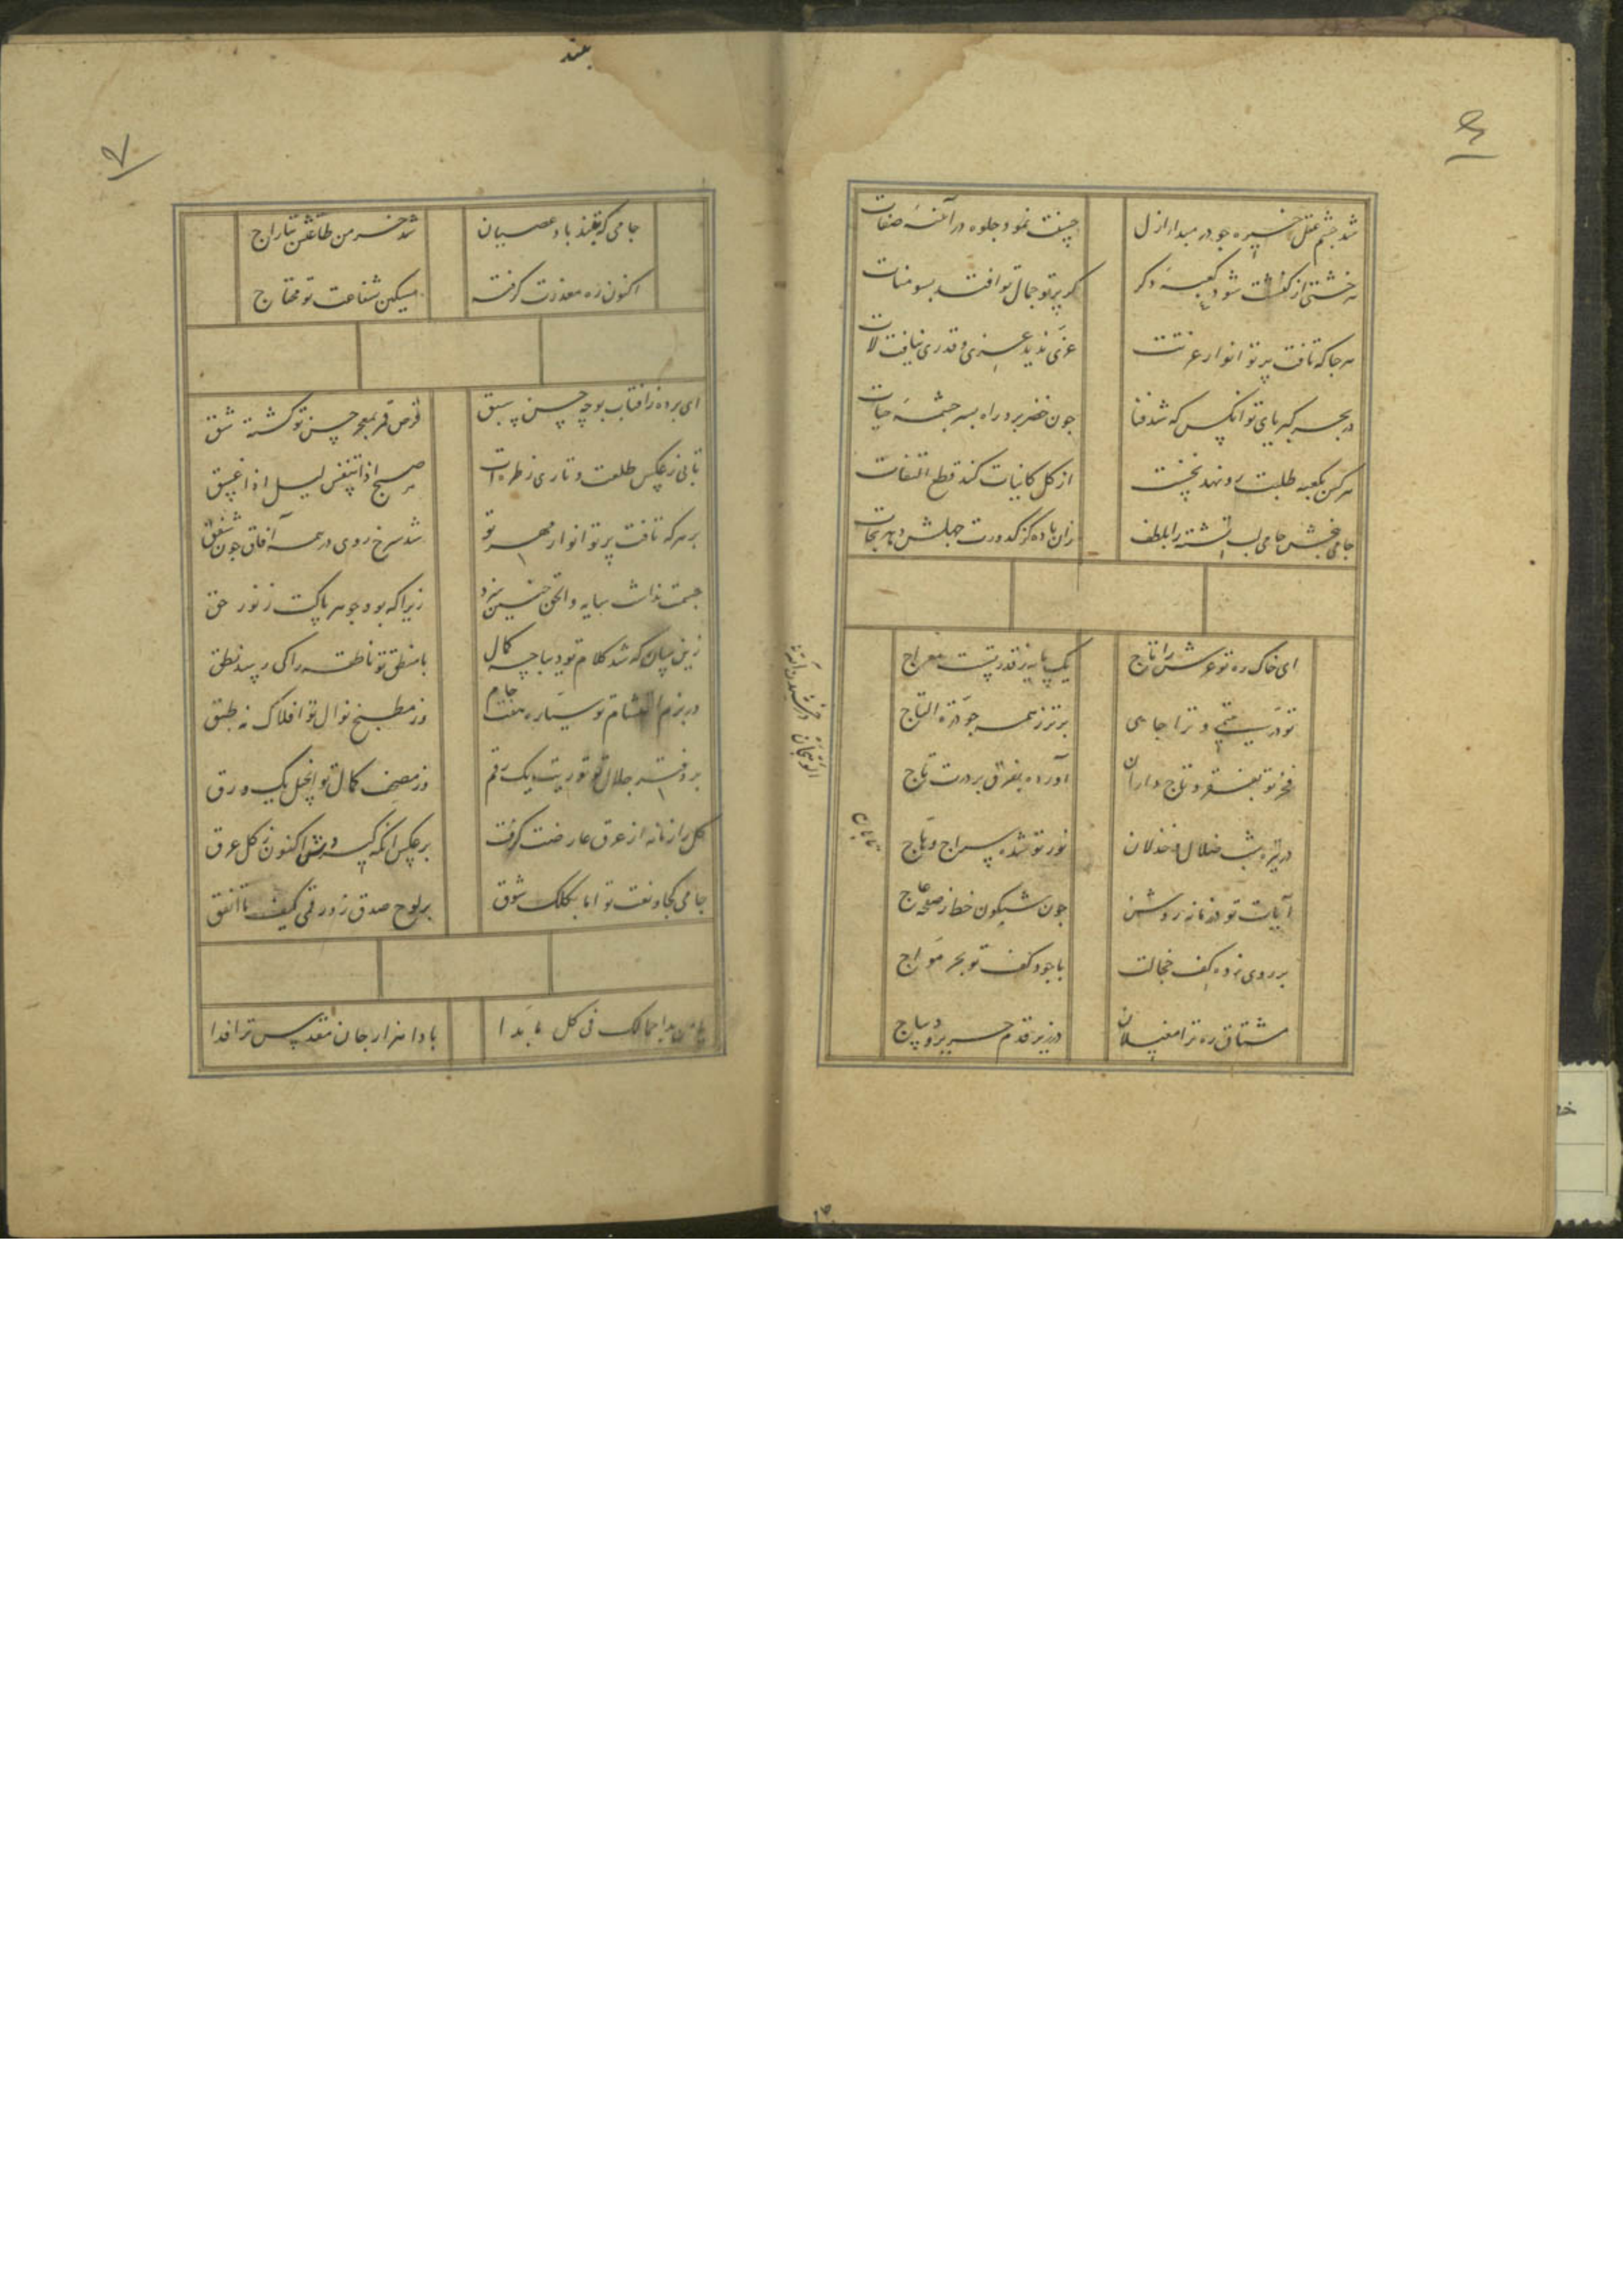 شد چشم عقل خیره جو در مبدا ازل
حسنت نمود جلوه در آئنهٔ صفات
هر خشتی از کنشت شود کعبهٔ دکر
کر پرتو جمال تو افتد بسومنات
هر جا که تافت پرتو انوار عزتت
عزی ندید عزی و قدری نیافت لات
در بحر کبریای تو انکس که شد فنا
جون خضر برد راه بسر جشمهٔ حیات
هر کس بکعبهٔ طلبت رو نهد نخست
از کل کائنات کند قطع التفات
جامی لب تشنه را بلطف
زان باده کز کدورت جهلش دهد نجات
ای خاک ره تو عرش را تاج
یک پایه ز قدر تست معراج
تو در یتیمی و ترا جا همی
برتر ز همه جو درة التاج
فخر تو بفقر و تاج داران
آورده بفرق بر درت تاج
در تیره شب ضلال و خذلان
نور تو شده سراج وهاج
آیات تو در زمانه روشن
جون شبکون خط ز صفحهٔ عاج
بر روی زده کف خجالت
با جود کف تو بحر مواج
مشتاق ره ترا مغیلان
در زیر قدم حریر و دیباج
تابان
۶
۷
بند
جامی که فکند باد عصیان
شد خرمن طاعتش بتاراج
اکنون ره معذرت کرفته
مسکین شفاعت تو محتاج
ای برده ز افتاب بوجه حسن سبق
قرص قمر بمعجز حسن تو کشته شق
تابی ز عکس طلعت و تاری ز طره ات
صبح اذا تنفس لیل اذا غسق
بر هر که تافت پرتو انوار مهر تو
شد سرخ روی در همه آفاق جون شفق
جسمت نداشت سایه و الحق جنین سزد
زیرا که بود جوهر پاکت ز نور حق
زین سان که شد کلام تو دیباجهٔ کمال
با منطق تو ناطقه را کی رسد نطق
در بزم احتشام تو سیاره هفت جام
وز مطبخ نوال تو افلاک نه طبق
بر دفتر جلال تو توریت یک رقم
وز مصحف کمال تو انجیل یک ورق
کل را زمانه از عرق عارضت کرفت
بر عکس انکه کیرد اکنون ز کل عرق
جامی کجا و نعت تو اما بکلک شوق
بر لوح صدق زد رقمی کیف ما اتفق
یا من بدا جمالک فی کل ما بدا
بادا هزار جان مقدس ترا فدا